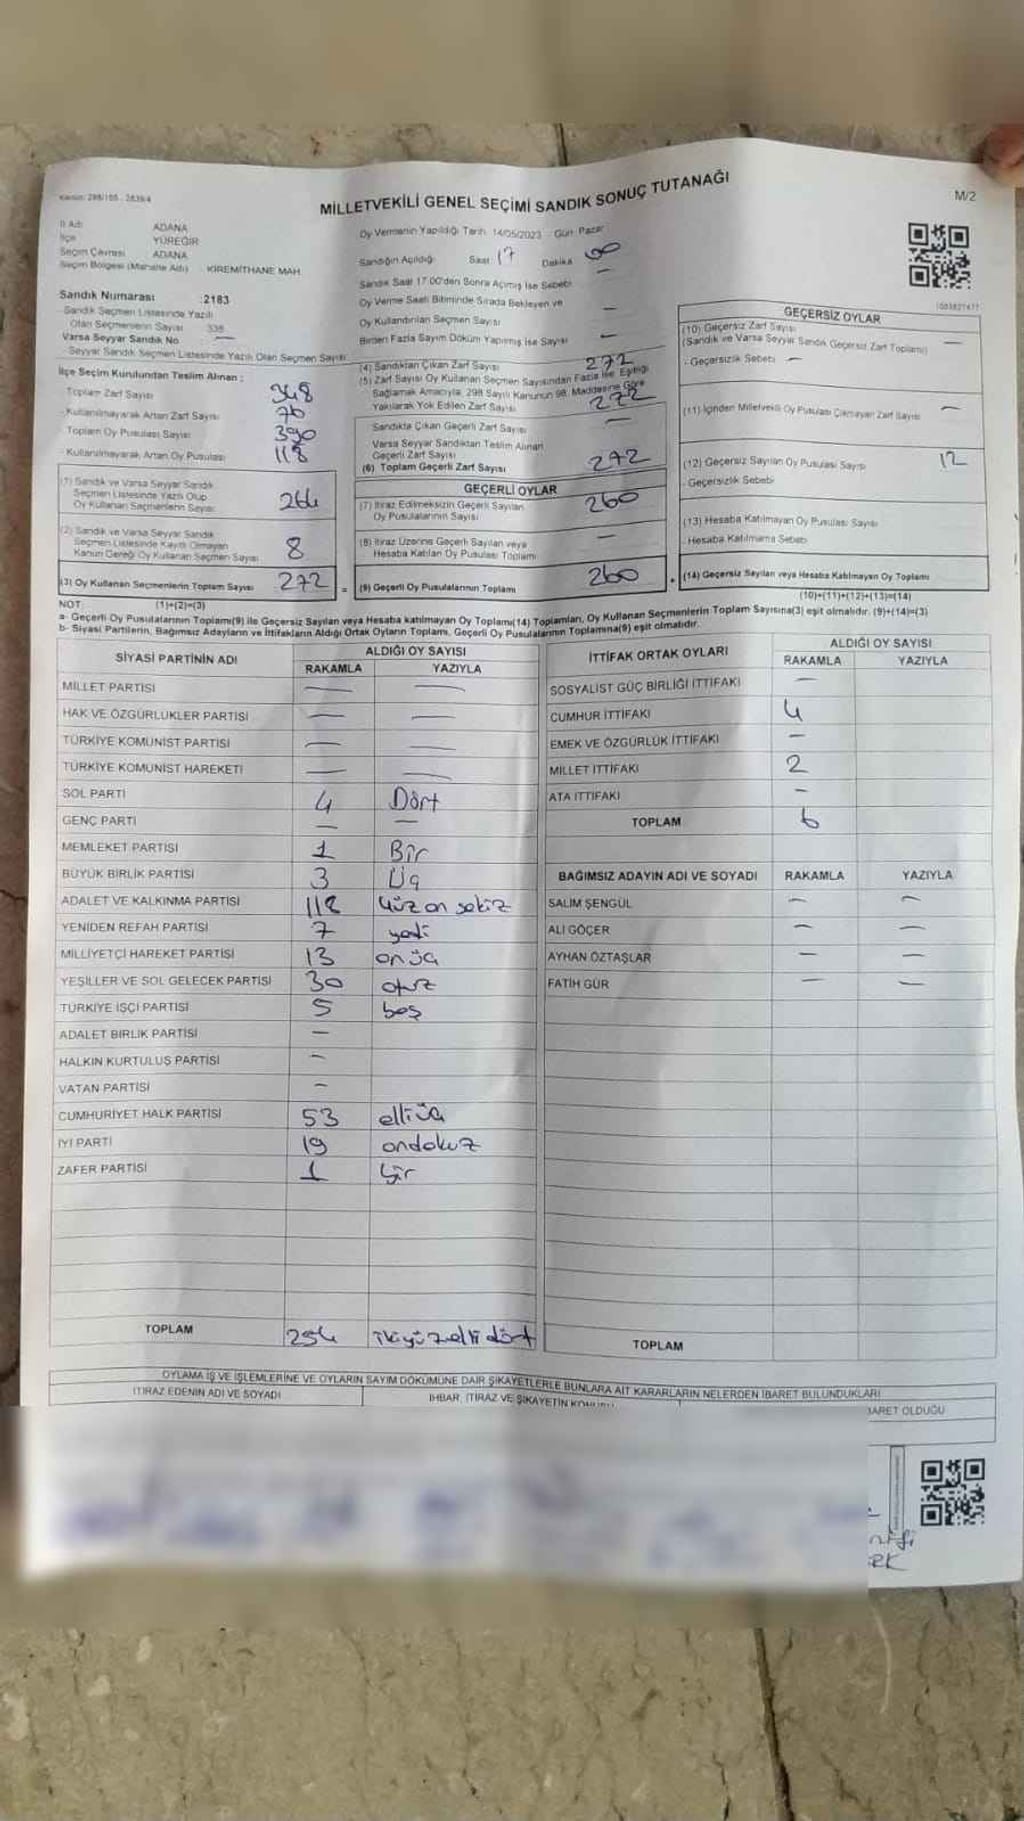 Kanun: 298/105 - 2839/4
MİLLETVEKİLİ GENEL SEÇİMİ SANDIK SONUÇ TUTANAĞI
M/2
İl Adı ADANA
İlçe YÜREĞİR
Seçim Çevresi ADANA
Seçim Bölgesi (Mahalle Adı) KİREMİTHANE MAH.
Sandık Numarası : 2183
- Sandık Seçmen Listesinde Yazılı
Olan Seçmenlerin Sayısı 338
Varsa Seyyar Sandık No —
- Seyyar Sandık Seçmen Listesinde Yazılı Olan Seçmen Sayısı
İlçe Seçim Kurulundan Teslim Alınan :
- Toplam Zarf Sayısı 348
- Kullanılmayarak Artan Zarf Sayısı 76
- Toplam Oy Pusulası Sayısı 390
- Kullanılmayarak Artan Oy Pusulası 118
(1) Sandık ve Varsa Seyyar Sandık
Seçmen Listesinde Yazılı Olup
Oy Kullanan Seçmenlerin Sayısı 264
(2) Sandık ve Varsa Seyyar Sandık
Seçmen Listesinde Kayıtlı Olmayan
Kanun Gereği Oy Kullanan Seçmen Sayısı 8
(3) Oy Kullanan Seçmenlerin Toplam Sayısı 272 =
(1)+(2)=(3)
Oy Vermenin Yapıldığı Tarih: 14/05/2023 - Gün: Pazar
Sandığın Açıldığı Saat 17 Dakika 00
Sandık Saat 17:00'den Sonra Açılmış İse Sebebi —
Oy Verme Saati Bitiminde Sırada Bekleyen ve
Oy Kullandırılan Seçmen Sayısı —
Birden Fazla Sayım Döküm Yapılmış İse Sayısı —
(4) Sandıktan Çıkan Zarf Sayısı 272
(5) Zarf Sayısı Oy Kullanan Seçmen Sayısından Fazla İse, Eşitliği
Sağlamak Amacıyla, 298 Sayılı Kanunun 98. Maddesine Göre
Yakılarak Yok Edilen Zarf Sayısı 272
Sandıkta Çıkan Geçerli Zarf Sayısı —
Varsa Seyyar Sandıktan Teslim Alınan
Geçerli Zarf Sayısı
(6) Toplam Geçerli Zarf Sayısı 272
GEÇERLİ OYLAR
(7) İtiraz Edilmeksizin Geçerli Sayılan
Oy Pusulalarının Sayısı 260
(8) İtiraz Üzerine Geçerli Sayılan veya
Hesaba Katılan Oy Pusulası Toplamı —
(9) Geçerli Oy Pusulalarının Toplamı 260
GEÇERSİZ OYLAR
(10) Geçersiz Zarf Sayısı
(Sandık ve Varsa Seyyar Sandık Geçersiz Zarf Toplamı) —
- Geçersizlik Sebebi —
(11) İçinden Milletvekili Oy Pusulası Çıkmayan Zarf Sayısı —
(12) Geçersiz Sayılan Oy Pusulası Sayısı 12
- Geçersizlik Sebebi
(13) Hesaba Katılmayan Oy Pusulası Sayısı
- Hesaba Katılmama Sebebi
(14) Geçersiz Sayılan veya Hesaba Katılmayan Oy Toplamı
(10)+(11)+(12)+(13)=(14)
NOT
a- Geçerli Oy Pusulalarının Toplamı(9) ile Geçersiz Sayılan veya Hesaba katılmayan Oy Toplamı(14) Toplamları, Oy Kullanan Seçmenlerin Toplam Sayısına(3) eşit olmalıdır. (9)+(14)=(3)
b- Siyasi Partilerin, Bağımsız Adayların ve İttifakların Aldığı Ortak Oyların Toplamı, Geçerli Oy Pusulalarının Toplamına(9) eşit olmalıdır.
SİYASİ PARTİNİN ADI ALDIĞI OY SAYISI
RAKAMLA YAZIYLA
MİLLET PARTİSİ — —
HAK VE ÖZGÜRLÜKLER PARTİSİ — —
TÜRKİYE KOMÜNİST PARTİSİ — —
TÜRKİYE KOMÜNİST HAREKETİ — —
SOL PARTİ 4 Dört
GENÇ PARTİ — —
MEMLEKET PARTİSİ 1 Bir
BÜYÜK BİRLİK PARTİSİ 3 Üç
ADALET VE KALKINMA PARTİSİ 118 Yüz on sekiz
YENİDEN REFAH PARTİSİ 7 yedi
MİLLİYETÇİ HAREKET PARTİSİ 13 onüç
YEŞİLLER VE SOL GELECEK PARTİSİ 30 otuz
TÜRKİYE İŞÇİ PARTİSİ 5 beş
ADALET BİRLİK PARTİSİ —
HALKIN KURTULUŞ PARTİSİ —
VATAN PARTİSİ —
CUMHURİYET HALK PARTİSİ 53 elliüç
İYİ PARTİ 19 ondokuz
ZAFER PARTİSİ 1 bir
TOPLAM 254 ikiyüzellidört
İTTİFAK ORTAK OYLARI ALDIĞI OY SAYISI
RAKAMLA YAZIYLA
SOSYALİST GÜÇ BİRLİĞİ İTTİFAKI —
CUMHUR İTTİFAKI 4
EMEK VE ÖZGÜRLÜK İTTİFAKI —
MİLLET İTTİFAKI 2
ATA İTTİFAKI —
TOPLAM 6
BAĞIMSIZ ADAYIN ADI VE SOYADI RAKAMLA YAZIYLA
SALİM ŞENGÜL — —
ALİ GÖÇER — —
AYHAN ÖZTAŞLAR — —
FATİH GÜR — —
TOPLAM
OYLAMA İŞ VE İŞLEMLERİNE VE OYLARIN SAYIM DÖKÜMÜNE DAİR ŞİKAYETLERLE BUNLARA AİT KARARLARIN NELERDEN İBARET BULUNDUKLARI
İTİRAZ EDENİN ADI VE SOYADI İHBAR, İTİRAZ VE ŞİKAYETİN KONUSU BARET OLDUĞU